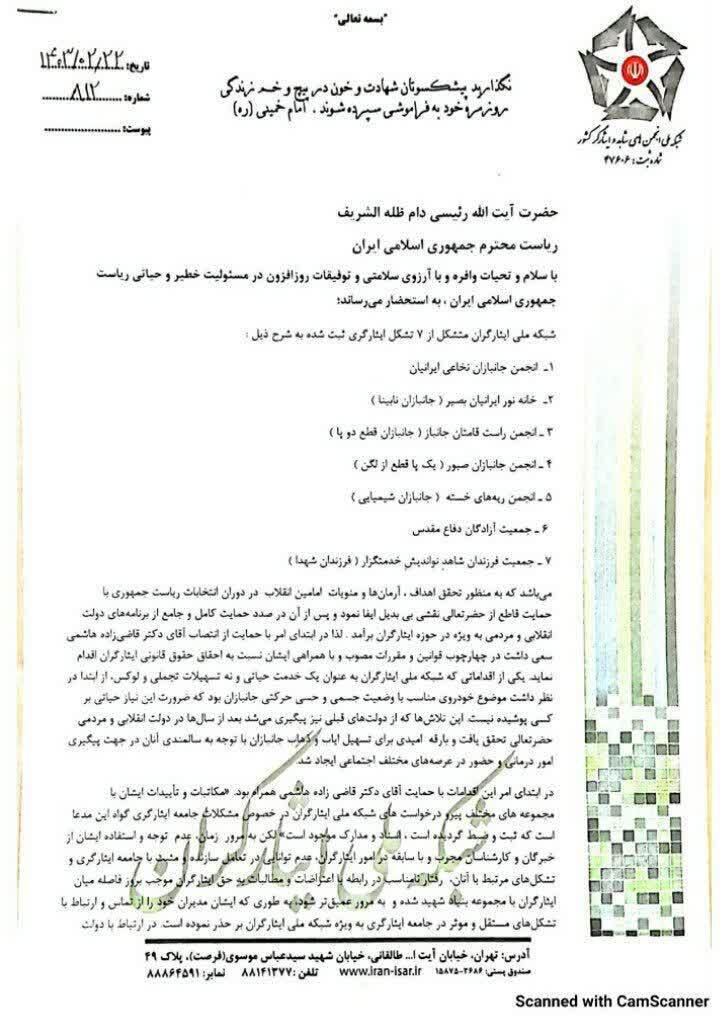 "بسمه تعالی"
تاریخ: ۱۴۰۳/۰۲/۲۲
شماره: ۸۱۲
پیوست:
نگذارید پیشکسوتان شهادت و خون در پیچ و خم زندگی
روزمره خود به فراموشی سپرده شوند . امام خمینی (ره)
شبکه ملی انجمن های شاهد و ایثارگر کشور
شماره ثبت: ۴۷۶۰۶
حضرت آیت الله رئیسی دام ظله الشریف
ریاست محترم جمهوری اسلامی ایران
با سلام و تحیات وافره و با آرزوی سلامتی و توفیقات روزافزون در مسئولیت خطیر و حیاتی ریاست
جمهوری اسلامی ایران ، به استحضار می‌رساند؛
شبکه ملی ایثارگران متشکل از ۷ تشکل ایثارگری ثبت شده به شرح ذیل :
۱- انجمن جانبازان نخاعی ایرانیان
۲- خانه نور ایرانیان بصیر ( جانبازان نابینا )
۳ - انجمن راست قامتان جانباز ( جانبازان قطع دو پا )
۴ - انجمن جانبازان صبور ( یک پا قطع از لگن )
۵ - انجمن ریه‌های خسته ( جانبازان شیمیایی )
۶ - جمعیت آزادگان دفاع مقدس
۷ - جمعیت فرزندان شاهد نواندیش خدمتگزار ( فرزندان شهدا )
می‌باشد که به منظور تحقق اهداف ، آرمان‌ها و منویات امامین انقلاب در دوران انتخابات ریاست جمهوری با
حمایت قاطع از حضرتعالی نقشی بی بدیل ایفا نمود و پس از آن در صدد حمایت کامل و جامع از برنامه‌های دولت
انقلابی و مردمی به ویژه در حوزه ایثارگران برآمد . لذا در ابتدای امر با حمایت از انتصاب آقای دکتر قاضی‌زاده هاشمی
سعی داشت در چهارچوب قوانین و مقررات مصوب و با همراهی ایشان نسبت به احقاق حقوق قانونی ایثارگران اقدام
نماید. یکی از اقداماتی که شبکه ملی ایثارگران به عنوان یک خدمت حیاتی و نه تسهیلات تجملی و لوکس، از ابتدا در
نظر داشت موضوع خودروی مناسب با وضعیت جسمی و حسی حرکتی جانبازان بود که ضرورت این نیاز حیاتی بر
کسی پوشیده نیست. این تلاش‌ها که از دولت‌های قبلی نیز پیگیری می‌شد بعد از سال‌ها در دولت انقلابی و مردمی
حضرتعالی تحقق یافت و بارقه امیدی برای تسهیل ایاب و ذهاب جانبازان با توجه به سالمندی آنان در جهت پیگیری
امور درمانی و حضور در عرصه‌های مختلف اجتماعی ایجاد شد.
در ابتدای امر این اقدامات با حمایت آقای دکتر قاضی زاده هاشمی همراه بود. «مکاتبات و تأییدات ایشان با
مجموعه های مختلف پیرو درخواست های شبکه ملی ایثارگران در خصوص مشکلات جامعه ایثارگری گواه این مدعا
است که ثبت و ضبط گردیده است ، اسناد و مدارک موجود است» لکن به مرور زمان، عدم توجه و استفاده ایشان از
خبرگان و کارشناسان مجرب و با سابقه در امور ایثارگران، عدم توانایی در تعامل سازنده و مثبت با جامعه ایثارگری و
تشکل‌های مرتبط با آنان، رفتار نامناسب در رابطه با اعتراضات و مطالبات به حق ایثارگران موجب بروز فاصله میان
ایثارگران با مجموعه بنیاد شهید شده و به مرور عمیق‌تر شود، به طوری که ایشان مدیران خود را از تماس و ارتباط با
تشکل‌های مستقل و موثر در جامعه ایثارگری به ویژه شبکه ملی ایثارگران بر حذر نموده است. در ارتباط با دولت
شبکه ملی ایثارگران
آدرس: تهران، خیابان آیت ا... طالقانی، خیابان شهید سیدعباس موسوی(فرصت)، پلاک ۴۹
صندوق پستی: ۳۶۸۶-۱۵۸۷۵ www.iran-isar.ir تلفن: ۸۸۱۴۱۳۷۷ نمابر: ۸۸۸۶۴۵۹۱
Scanned with CamScanner